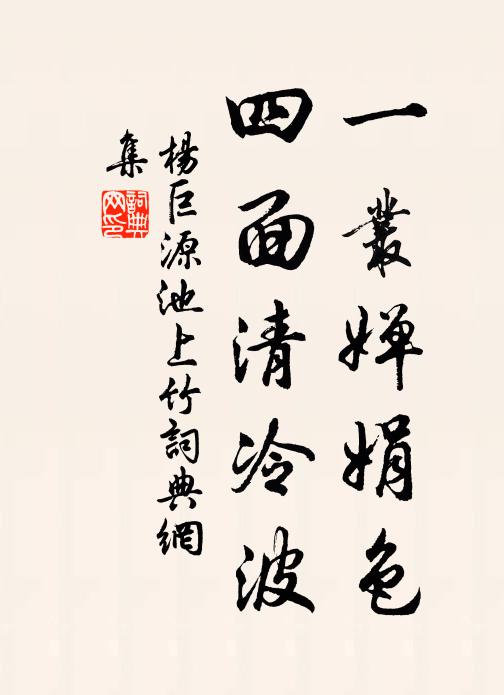 一叢嬋娟色
四面清冷波
楊巨源池上竹詞典網
集
詞典
网印